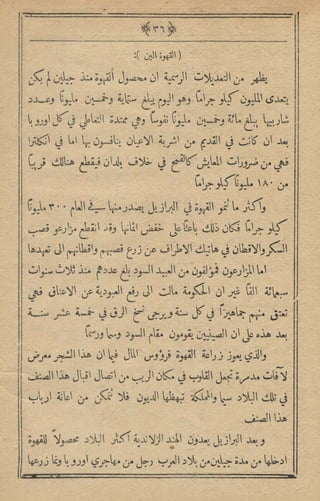 ﴿ ٣٦ ﴾
( القهوة البن ):
يظهر من التعديلات الرسمية ان محصول القهوة منذ جيلين لم يكن
يتعدى المليون كيلو جراما وهو اليوم يبلغ ستماية وخمسين مليونًا وعدد
شاربيها يبلغ مائة وخمسين مليونًا نفوسًا وهي ممتدة التعاطي في كل اوروبا
بعد ان كانت في القديم من اشربة الاعيان يتنافسون بها اما في انكلترا
فهي من ضرورات المعايش كالقمح في خلاف بلدان فيقطع هنالك قريبًا
من ١٨٠ مليونًا كيلو جراما
واكثر ما تنمو القهوة في البرازيل يصدر منها في العام ٣٠٠ مليونًا
كيلو جرامًا فكان ذلك باعثًا على خفض اثمانها وقد انقطع مزارعو قصب
السكر والاقطان في هاتيك الاطراف عن زرع قصبهم واقطانهم الى تعهدها
اما المزارعون فمؤلفون من العبيد السود بلغ عددهم منذ ثلاث سنوات
سبعمائة الفًا غير ان الحكومة مالت الى رفع العبودية عن الاعناق فهي
تعتق منهم جماهيرًا في كل سنة ويرجى نسخ الرق في خمسة عشر سنة
بعد هذه على ان الصينيين يقومون مقام السود وسما ورسمًا
والذي يعوز زراعة القهوة فرؤوس المال فيما ان هذا الشجر معرض
لآفات مدمرة تجعل القلوب في مكان الريب من اتصال اقبال هذا الصنف
في تلك البلاد سيما والمملكة تبهظها الديون فلا تتمكن من اعانة ارباب
هذا الصنف
وبعد البرازيل يعدون الهند الزلاندية اكثر البلاد محصولاً للقهوة
ادخلها من مدة جيلين من بلاد العرب رجل من مهاجري اوروبا ونما زرعها